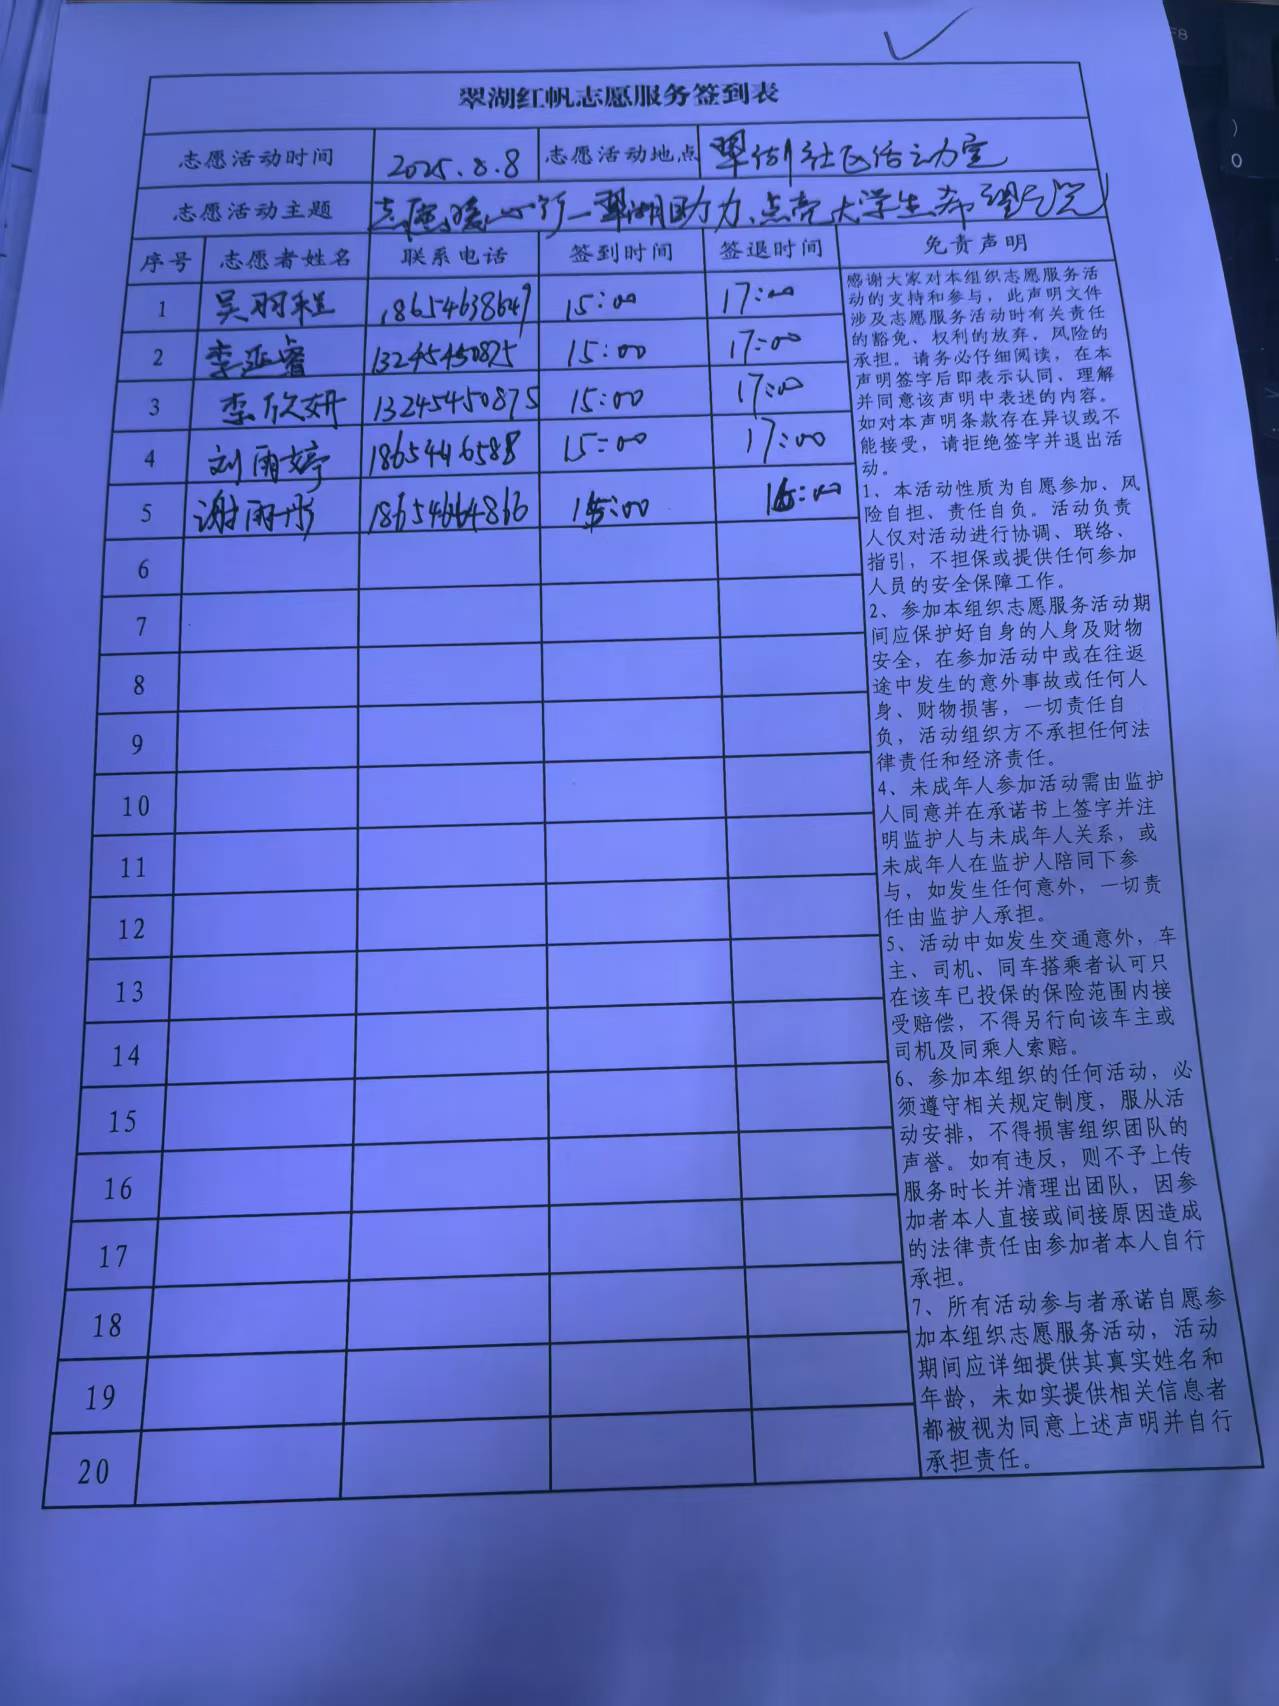 翠湖红帆志愿服务签到表
志愿活动时间 2025.8.8 志愿活动地点 翠湖社区活动室
志愿活动主题 志愿暖心行一翠湖助力、点亮大学生希望
序号 志愿者姓名 联系电话 签到时间 签退时间 免责声明
1 吴羽程 18654638649 15:00 17:00
2 李亚睿 13245450875 15:00 17:00
3 李欣妍 13245450875 15:00 17:00
4 刘雨婷 1865446588 15:00 17:00
5 谢雨彤 18654664866 15:00 16:00
6
7
8
9
10
11
12
13
14
15
16
17
18
19
20
感谢大家对本组织志愿服务活
动的支持和参与，此声明文件
涉及志愿服务活动时有关责任
的豁免、权利的放弃、风险的
承担。请务必仔细阅读，在本
声明签字后即表示认同、理解
并同意该声明中表述的内容。
如对本声明条款存在异议或不
能接受，请拒绝签字并退出活
动。
1、本活动性质为自愿参加、风
险自担、责任自负。活动负责
人仅对活动进行协调、联络、
指引，不担保或提供任何参加
人员的安全保障工作。
2、参加本组织志愿服务活动期
间应保护好自身的人身及财物
安全，在参加活动中或在往返
途中发生的意外事故或任何人
身、财物损害，一切责任自
负，活动组织方不承担任何法
律责任和经济责任。
4、未成年人参加活动需由监护
人同意并在承诺书上签字并注
明监护人与未成年人关系，或
未成年人在监护人陪同下参
与，如发生任何意外，一切责
任由监护人承担。
5、活动中如发生交通意外，车
主、司机、同车搭乘者认可只
在该车已投保的保险范围内接
受赔偿，不得另行向该车主或
司机及同乘人索赔。
6、参加本组织的任何活动，必
须遵守相关规定制度，服从活
动安排，不得损害组织团队的
声誉。如有违反，则不予上传
服务时长并清理出团队，因参
加者本人直接或间接原因造成
的法律责任由参加者本人自行
承担。
7、所有活动参与者承诺自愿参
加本组织志愿服务活动，活动
期间应详细提供其真实姓名和
年龄，未如实提供相关信息者
都被视为同意上述声明并自行
承担责任。
F8
)
0